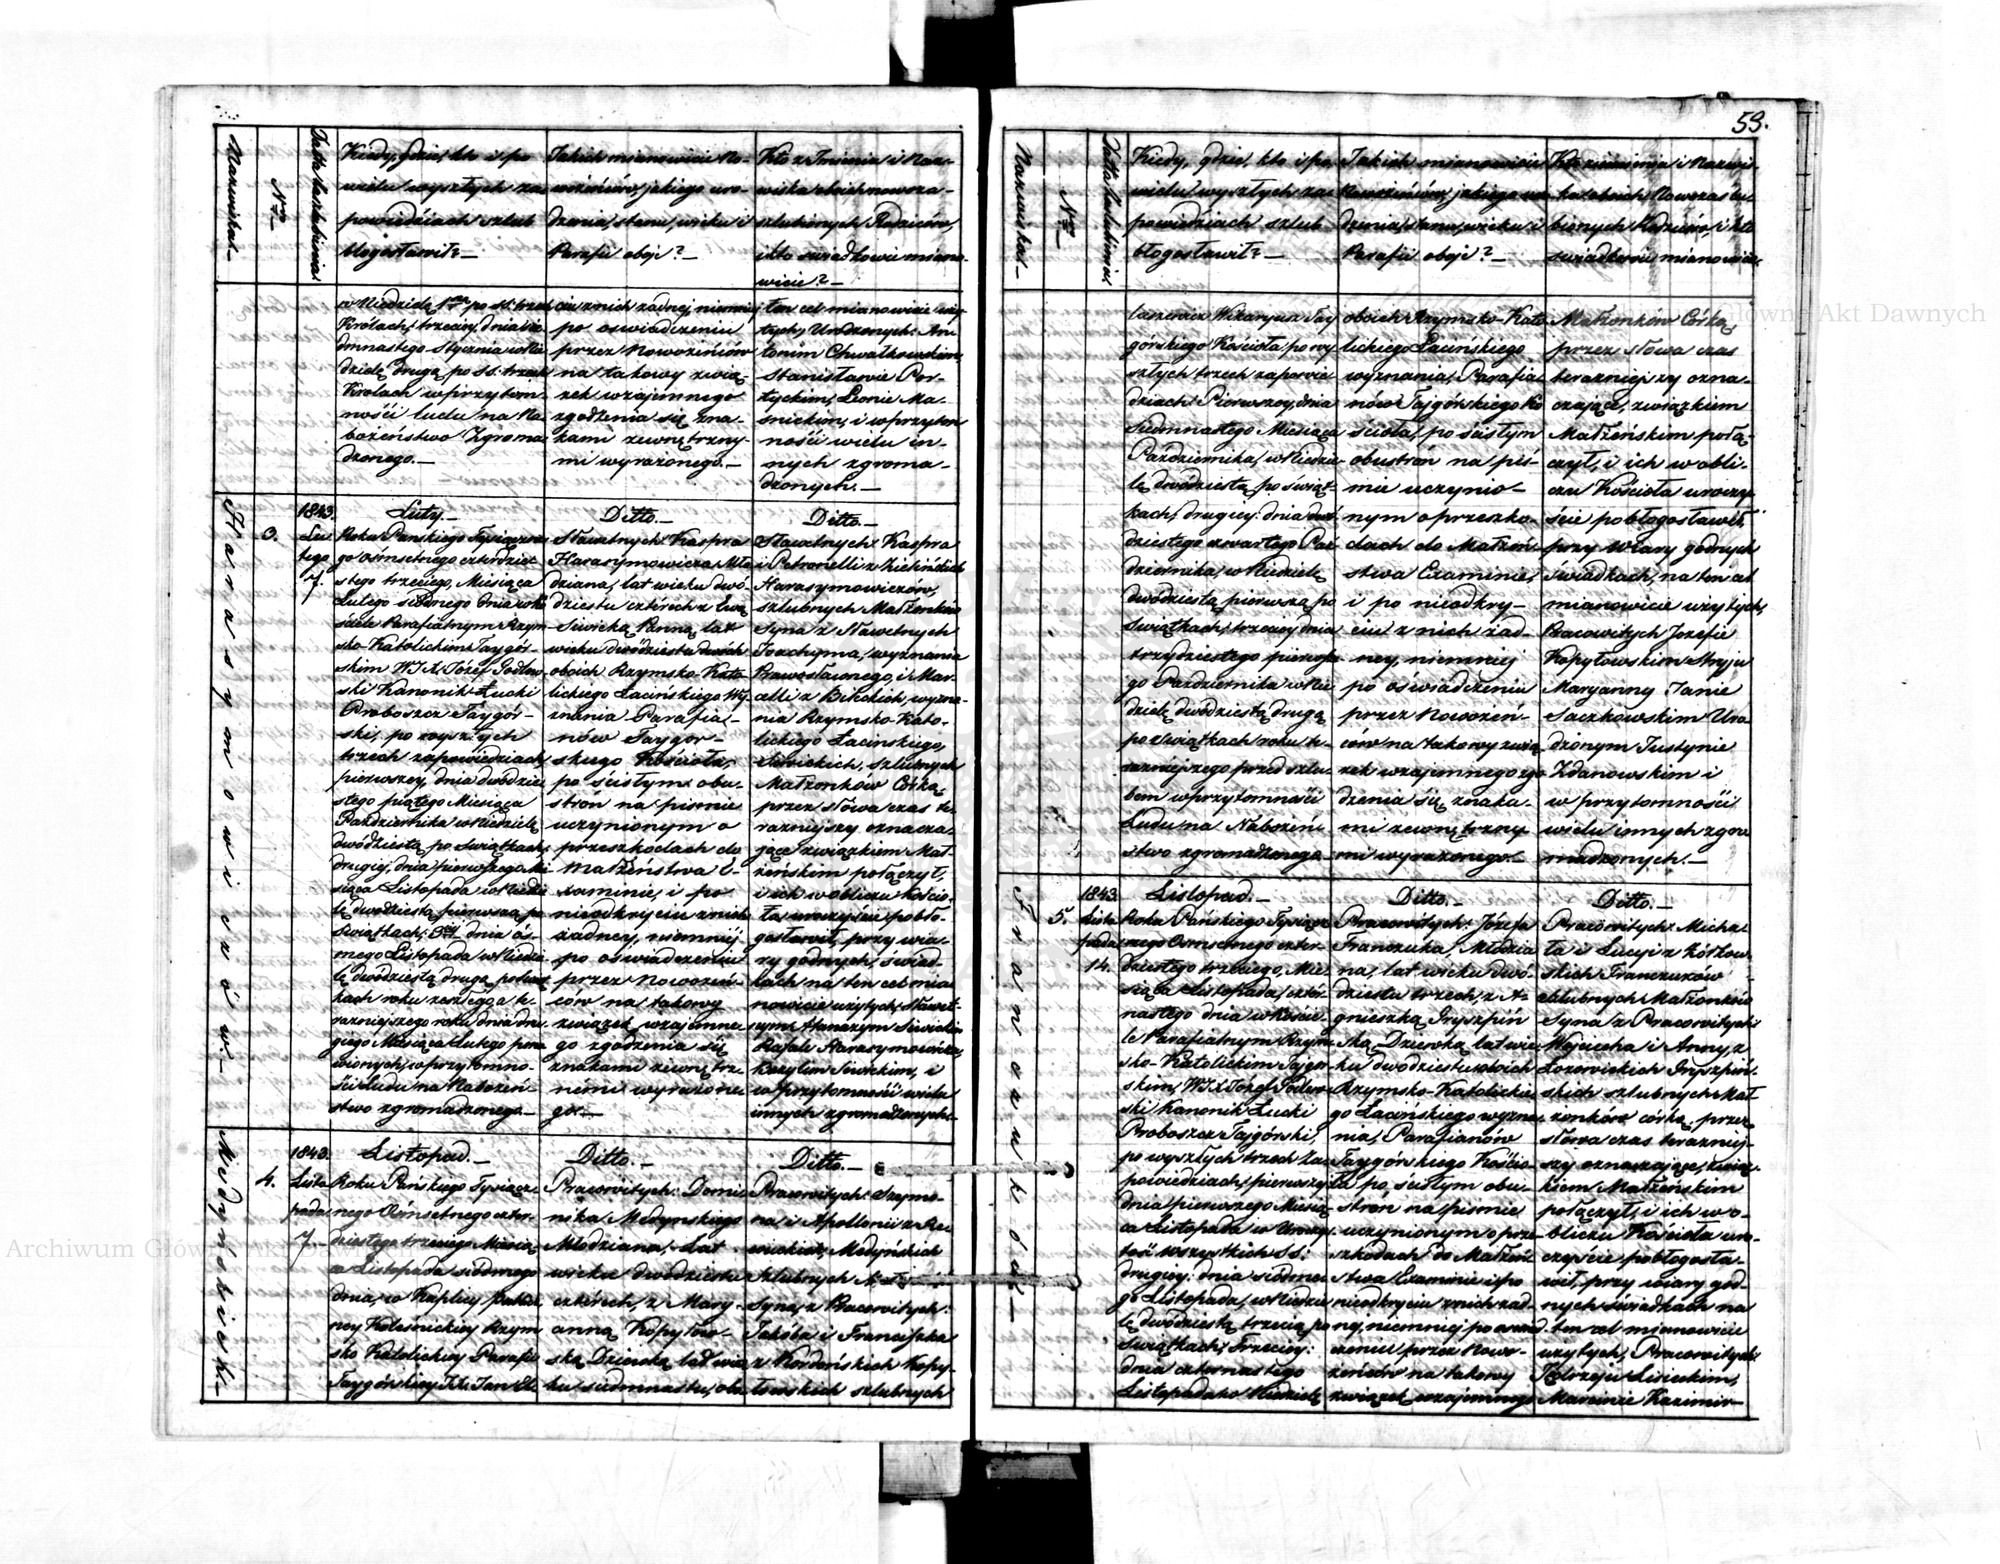 Nazwiska.—
No
Datta zaślubienia
Kiedy, gdzie, kto i po
wielu wyszłych za
powiedziach szlub
błogosławił?—
Jakich mianowicie No-
wożeńców, jakiego uro-
dzenia, stanu, wieku i
Parafii oboje?—
Kto z Imienia i Naz-
wiska obich nowoza-
szlubionych Rodziców,
i kto świadkowie miano-
wicie?—
w Niedzielę 1szą po SS: trzech
Królach, trzeciej, dnia
siedmnastego Stycznia w Nie
dzielę drugą, po SS: trzech
Królach w przytom-
ności ludu na Na
bożeństwo Zgroma
dzonego.—
ciu z nich żadnej, niemniej
po oswiadczeniu
przez Nowożeńców
na takowy zwią-
zek wzajemnego
zgodzenia się zna-
kami zewnętrzny-
mi wyrażonego.—
ten cel mianowicie uży-
tych, Urodzonych: An-
tonim Chwałkowskim,
Stanisławie Por-
tyckim, Leonie Ma-
śnickim, i w przytom
ności wielu in-
nych zgroma-
dzonych.—
Harasymowiczów.—
3.
1843.
Lu
tego
7.
Luty.—
Roku Pańskiego Tysiączne
go ośmsetnego czterdzie
stego trzeciego, Miesiąca
Lutego siódmego dnia w Ko
ściele Parafialnym Rzym-
sko-Katolickim Taygór-
skim W.J.X. Józef Podlew-
ski Kanonik Łucki
Proboszcz Taygór-
ski, po wyszłych
trzech zapowiedziach,
pierwszej, dnia dwódzie
stego piątego Miesiąca
Października w Niedzielę
dwódziestą po Swiątkach,
drugiej, dnia pierwszego Mie
siąca Listopada w Niedzie
lę dwódziestą pierwszą po
Swiątkach, 3ciej dnia ós-
mego Listopada, w Niedzie-
lę dwódziestą drugą po Świąt
kach roku zeszłego, a te-
raźniejszego roku dnia dru-
giego Miesiąca Lutego pona
wionych, w przytomno-
ści Ludu na Nabożeń-
stwo zgromadzonego.—
Ditto.—
Sławetnych: Kaspra
Harasymowicza Mło
dziana, lat wieku dwó-
dziestu cztérech z Ewą
Siwicką Panną, lat
wieku dwódziestu dwóch
oboich Rzymsko-Kato
lickiego Łacińskiego Wy
znania Parafia-
nów Taygór-
skiego Kościoła,
po ścisłym obu-
stron na pismie
uczynionym o
przeszkodach do
Małżeństwa E-
xaminie, i po
nieodkryciu z nich
żadnej, niemniej
po oświadczeniu
przez Nowożeń-
ców na takowy
związek wzajemne
go zgodzenia się
znakami zewnętrz-
nemi wyrażone
go.—
Ditto.—
Sławetnych: Kaspra
i Petronelli z Zielińskich
Harasymowiczów,
szlubnych Małżonków
Syna z Sławetnych
Joachyma, wyznania
Prawosławnego, i Mar-
celli z Bikolich, wyzna-
nia Rzymsko-Kato-
lickiego Łacińskiego,
Siwickich, szlubnych
Małżonków Córką,
przez słowa czas te-
raźniejszy oznacza-
jące związkiem Mał-
żeńskim połączył,
i ich w obliczu Kościo-
ła uroczyście pobło-
gosławił, przy wia-
ry godnych, świad-
kach na ten cel mia-
nowicie użytych, Sławet-
nym: Hanazym Siwickim
Rafale Harasymowiczu,
Bazylim Siwickim, i
w przytomności wielu
innych zgromadzonych.—
Medyńskich.—
4.
1843.
Listo
pada
7.
Listopad.—
Roku Pańskiego Tysiącz
nego Ośmsetnego czter-
dziestego trzeciego Miesią-
ca Listopada siódmego
dnia, w Kaplicy
Rzym
sko Katolickiej Parafii
Taygórskiej J.X. Jan
Ditto.—
Pracowitych: Domi-
nika Medynskiego
Młodziana, Lat
wieku dwódziestu
cztérech, z Mary-
anną Kopyłow-
ską Dziewką lat wie
ku siedmnastu, oba
Ditto.—
Pracowitych: Szymo-
na i Apollonii z
Medyńskich
Szlubnych
Syna, z Pracowitych:
Jakóba i Franciszka
z Kordońskich Kopy-
łowskich szlubnych
59.
Nazwiska.—
No
Datta zaślubienia
Kiedy, gdzie, kto i po
wielu wyszłych za-
powiedziach szlub
błogosławił?—
Jakich mianowicie
Nowożeńców, jakiego uro
dzenia, stanu, wieku i
Parafii oboje?—
Kto z imienia i Nazwi-
ska oboich Nowozaślu-
bionych Rodziców, i kto
świadkowie mianowicie.
Wikaryusz Tay
górskiego Kościoła: po wy
szłych, trzech zapowie
dziach: Pierwszej, dnia
Siedmnastego Miesiąca
Października, w Niedzie-
lę dwódziestą po Swiąt-
kach, drugiej: dnia dwó
dziestego czwartego Paź
dziernika, w Niedzielę
dwódziestą pierwszą po
Swiątkach, trzeciej dnia
trzydziestego pierwsze
go Października w Nie
dzielę dwódziestą drugą
po Swiątkach roku te-
raźniejszego przed szlu-
bem w przytomności
Ludu na Nabożeń-
stwo zgromadzonego.—
oboich Rzymsko-Kato
lickiego Łacińskiego
wyznania, Parafia
nów Tajgórskiego Ko
ścioła, po ścisłym
obustrón na piś-
mie uczynio-
nym o przeszko-
dach do Małżeń-
stwa Examinie,
i po nieodkry-
ciu z nich żad-
nej, niemniej
po oświadczeniu
przez Nowożeń-
ców na takowy zwią
zek wzajemnego zgo
dzenia się znaka-
mi zewnętrzny-
mi wyrażonego.—
Małżonków Córką,
przez słowa czas
teraźniejszy ozna-
czające, związkiem
Małżeńskim połą-
czył, i ich w obli-
czu Kościoła uroczy
ście pobłogosławił,
przy Wiary godnych
świadkach, na ten cel
mianowicie użytych,
Pracowitych Jozefie
Kopyłowskim Stryju
Maryanny Janie
Saczkowskim Uro
dzonym Justynie
Zdanowskim i
w przytomności
wielu innych zgro
madzonych.—
Franczuków.—
5.
1843.
Listo
pada
14.
Listopad.—
Roku Pańskiego Tysiącz
nego Osmsetnego czter-
dziestego trzeciego, Mie
siąca Listopada, czter-
nastego dnia w Koście
le Parafialnym Rzym
sko-Katolickim Tajgór-
skim, W.J.X. Jozef Podlew-
ski Kanonik Łucki
Proboszcz Tajgórski,
po wyszłych trzech Za
powiedziach, pierwszej
dnia pierwszego Miesią-
ca Listopada w Uroczy-
stość wszystkich SS:
drugiej: dnia siódme
go Listopada, w Niedzie
lę dwódziestą trzecią po
Swiątkach, Trzeciej:
dnia czternastego
Listopada w Niedzielę
Ditto.—
Pracowitych: Józefa
Franczuka, Młodzia
na, lat wieku dwó-
dziestu trzech, z A-
gnieszką Gryszpiń
ską, Dziewką lat wie
ku dwódziestu oboich
Rzymsko-Katolickie
go Łacińskiego wyzna
nia, Parafianów
Taygórskiego Kościo-
ła po ścisłym obu-
strón na pismie
uczynionym o prze
szkodach do Małżeń
stwa Examinie i po
nieodkryciu z nich żad-
nej, niemniej po oświad
czeniu przez Nowo-
żeńców na takowy
związek wzajemnego
Ditto.—
Pracowitych: Micha
ła i Łucyi z Kótkow
skich Franczuków
szlubnych Małżonków
Syna z Pracowitych:
Wojciecha i Anny z
Łozowickich Gryszpiń
skich szlubnych Mał
żonków córką, przez
słówa czas teraźniej-
szy oznaczające, związ-
kiem Małżeńskim
połączył, i ich w o-
bliczu Kościoła uro-
czyście pobłogosła-
wił, przy wiary god-
nych świadkach na
ten cel mianowicie
użytych, Pracowitych:
Jędrzeju Lisieckim,
Marcinie Kazimir-
Archiwum Główne Akt Dawnych
Archiwum Główne Akt Dawnych